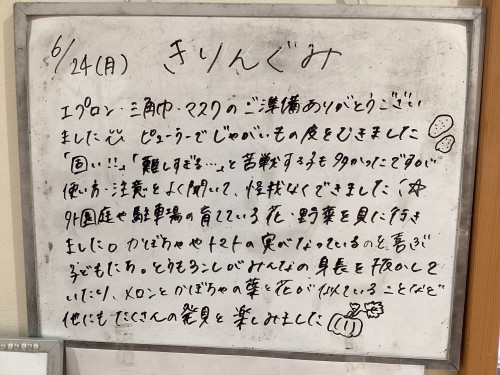 6/24(月) きりんぐみ
エプロン・三角巾・マスクのご準備ありがとうござい
ました ピューラーでじゃがいもの皮をむきました
「固い!!」「難しすぎる…」と苦戦する子も多かったですが
使い方・注意をよく聞いて、怪我なくできました
外園庭や駐車場の育てている花・野菜を見に行き
ました。かぼちゃやトマトの実がなっているのを喜ぶ
子どもたち。とうもろこしがみんなの身長を抜かして
いたり、メロンとかぼちゃの葉と花が似ていることなど
他にもたくさんの発見を楽しみました